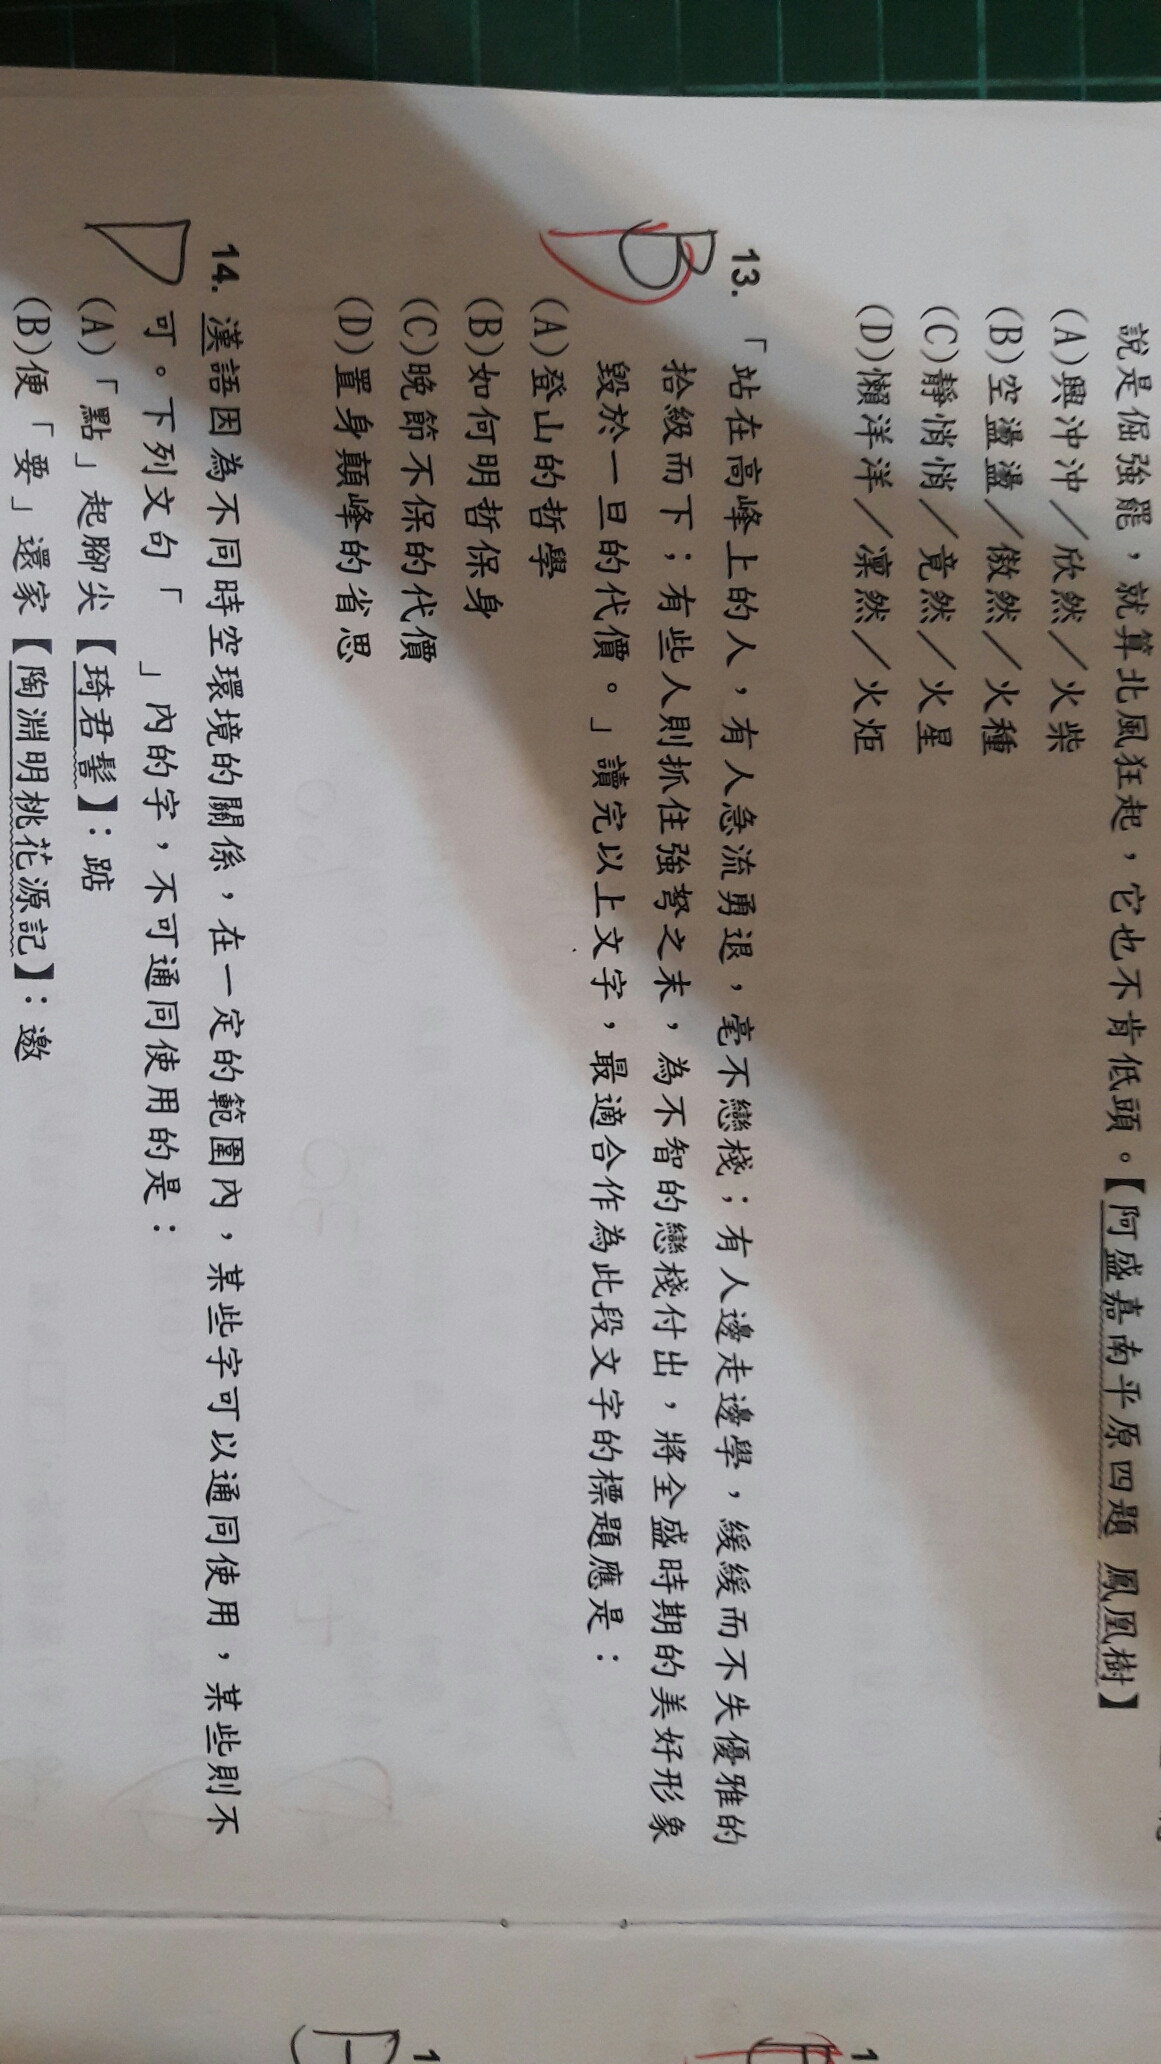 說是倔強罷，就算北風狂起，它也不肯低頭。【阿盛嘉南平原四題 鳳凰樹】
(A)興沖沖／欣然／火柴
(B)空盪盪／傲然／火種
(C)靜悄悄／竟然／火星
(D)懶洋洋／凜然／火炬
B
D
13. 「站在高峰上的人，有人急流勇退，毫不戀棧；有人邊走邊學，緩緩而不失優雅的
拾級而下；有些人則抓住強弩之末，為不智的戀棧付出，將全盛時期的美好形象
毀於一旦的代價。」讀完以上文字，最適合作為此段文字的標題應是：
(A)登山的哲學
(B)如何明哲保身
(C)晚節不保的代價
(D)置身顛峰的省思
D
14. 漢語因為不同時空環境的關係，在一定的範圍內，某些字可以通同使用，某些則不
可。下列文句「　」內的字，不可通同使用的是：
(A)「點」起腳尖【琦君髻】：踮
(B)便「要」還家【陶淵明桃花源記】：邀